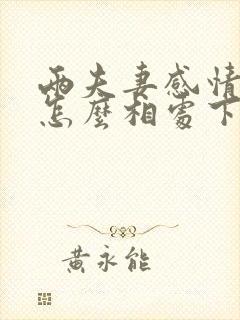 兩夫妻感情
怎麼相處下
黃永能